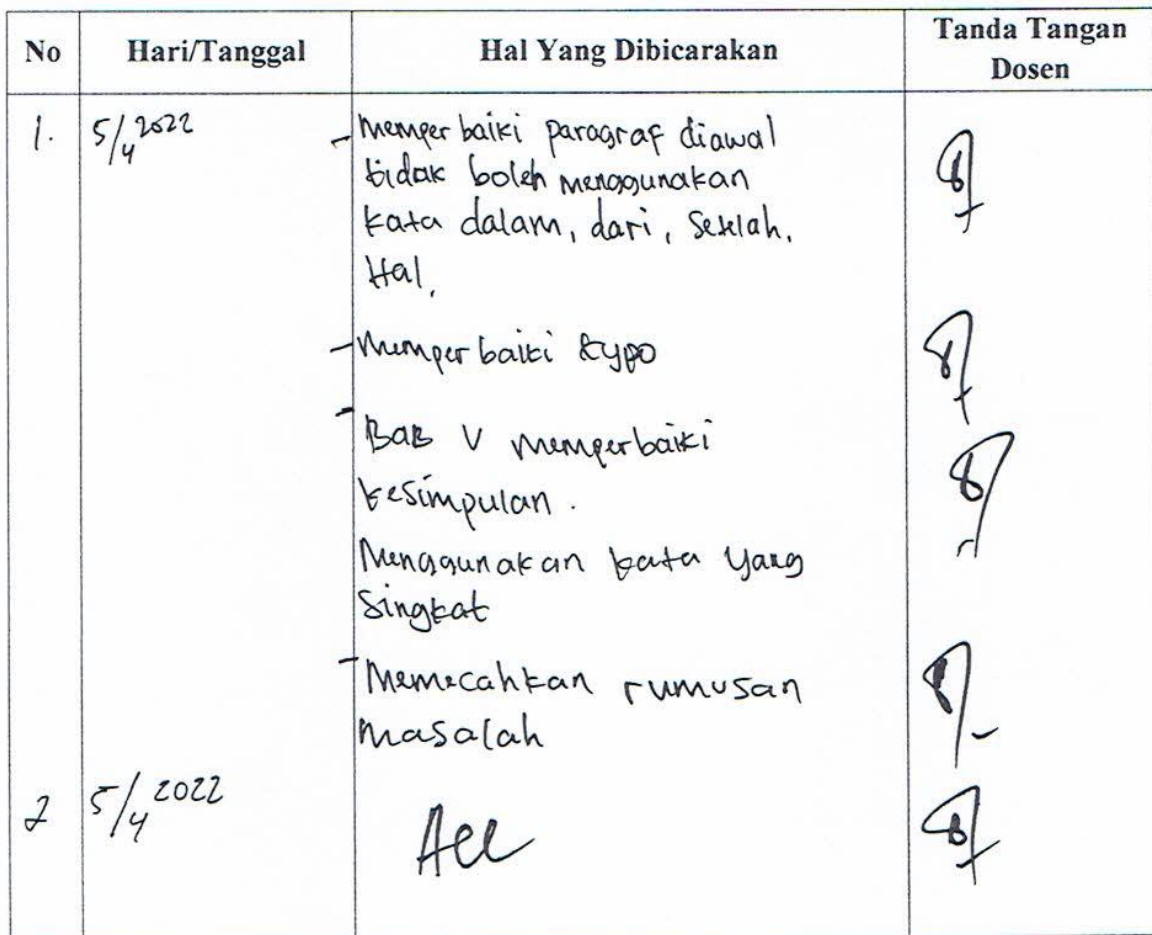 No Hari/Tanggal Hal Yang Dibicarakan Tanda Tangan Dosen
1. 5/4 2022 - Memperbaiki paragraf diawal
tidak boleh menggunakan
kata dalam, dari, Setelah,
Hal.
- Memperbaiki typo
- BAB V memperbaiki
kesimpulan.
Menggunakan kata yang
Singkat
- Memecahkan rumusan
masalah
2 5/4 2022 Acc